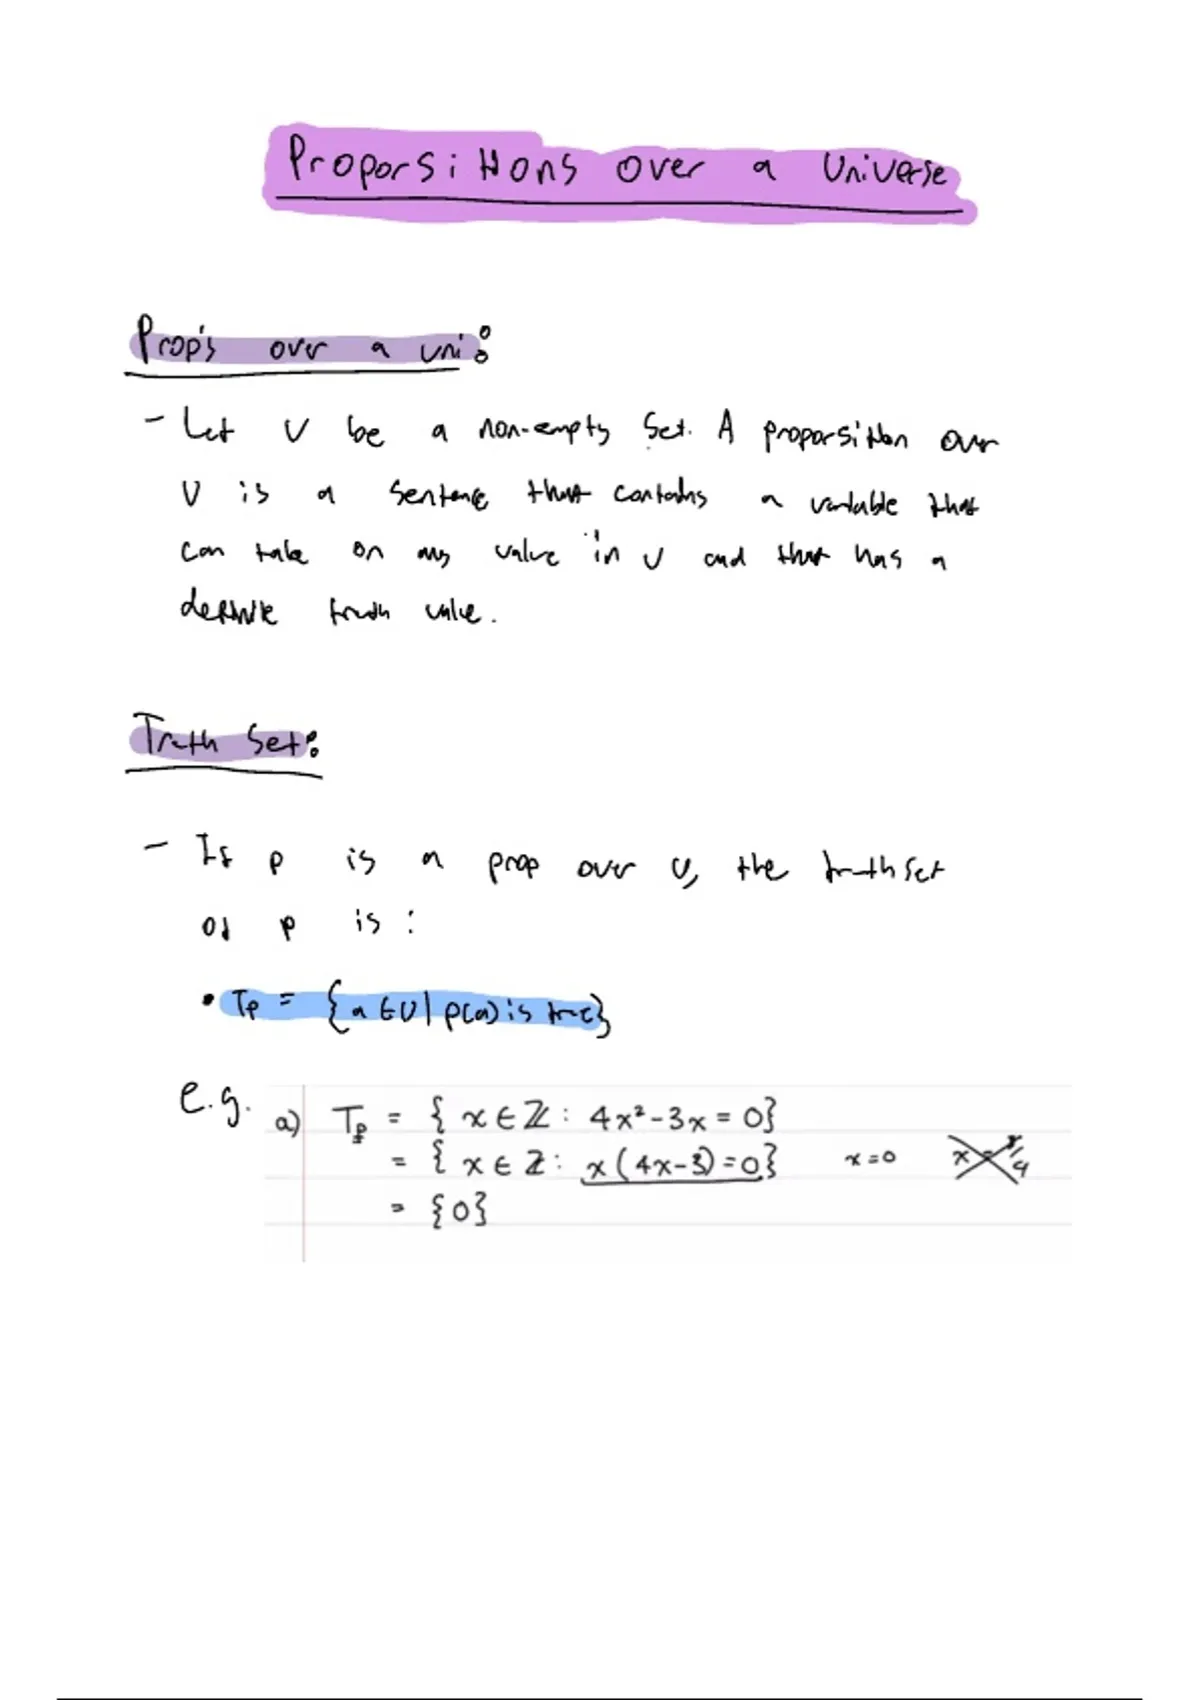 Proporsitions over a Universe
Prop's over a uni:
- Let U be a non-empty Set. A proporsition over
U is a sentence that contains a variable that
can take on any value in U and that has a
definite truth value.
Truth Set:
- If p is a prop over U, the truth set
of p is:
• Tp = {a ∈ U | p(a) is true}
e.g. a) Tp = { x ∈ ℤ : 4x² - 3x = 0}
= { x ∈ ℤ : x(4x-3) = 0} x = 0
= {0}